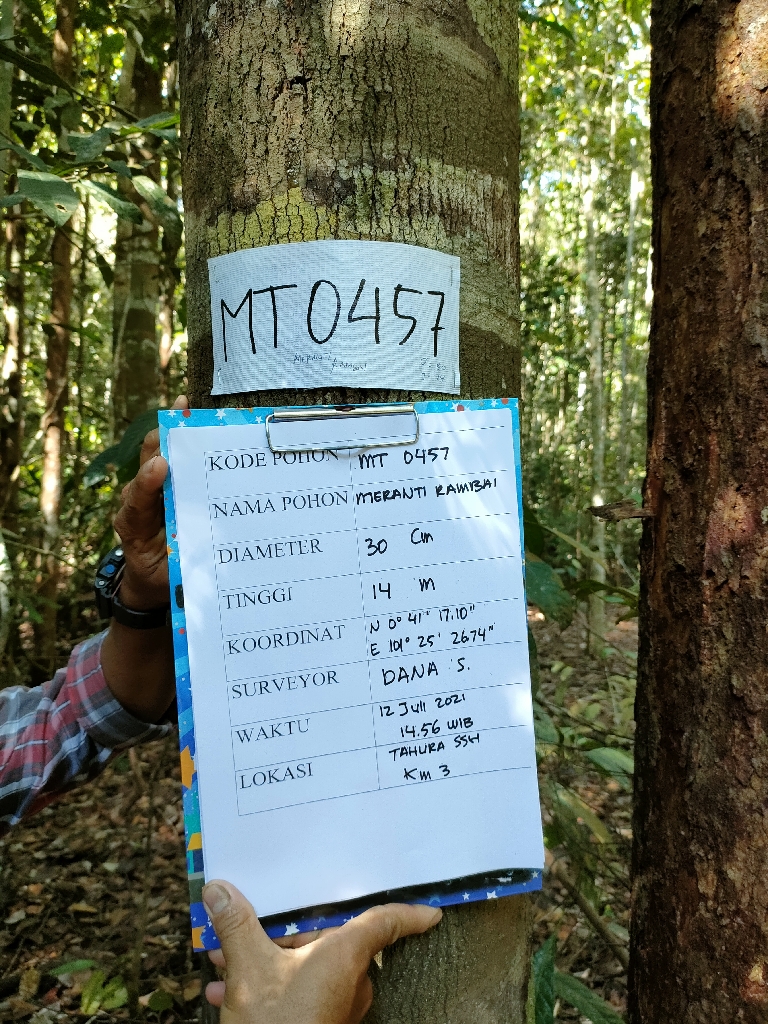 MT0457
KODE POHON MT 0457
NAMA POHON MERANTI RAMBAI
DIAMETER 30 Cm
TINGGI 14 m
KOORDINAT N 0° 41" 17.10"
E 101° 25' 26.74"
SURVEYOR DANA S.
WAKTU 12 Juli 2021
14.56 WIB
LOKASI TAHURA SSH
Km 3